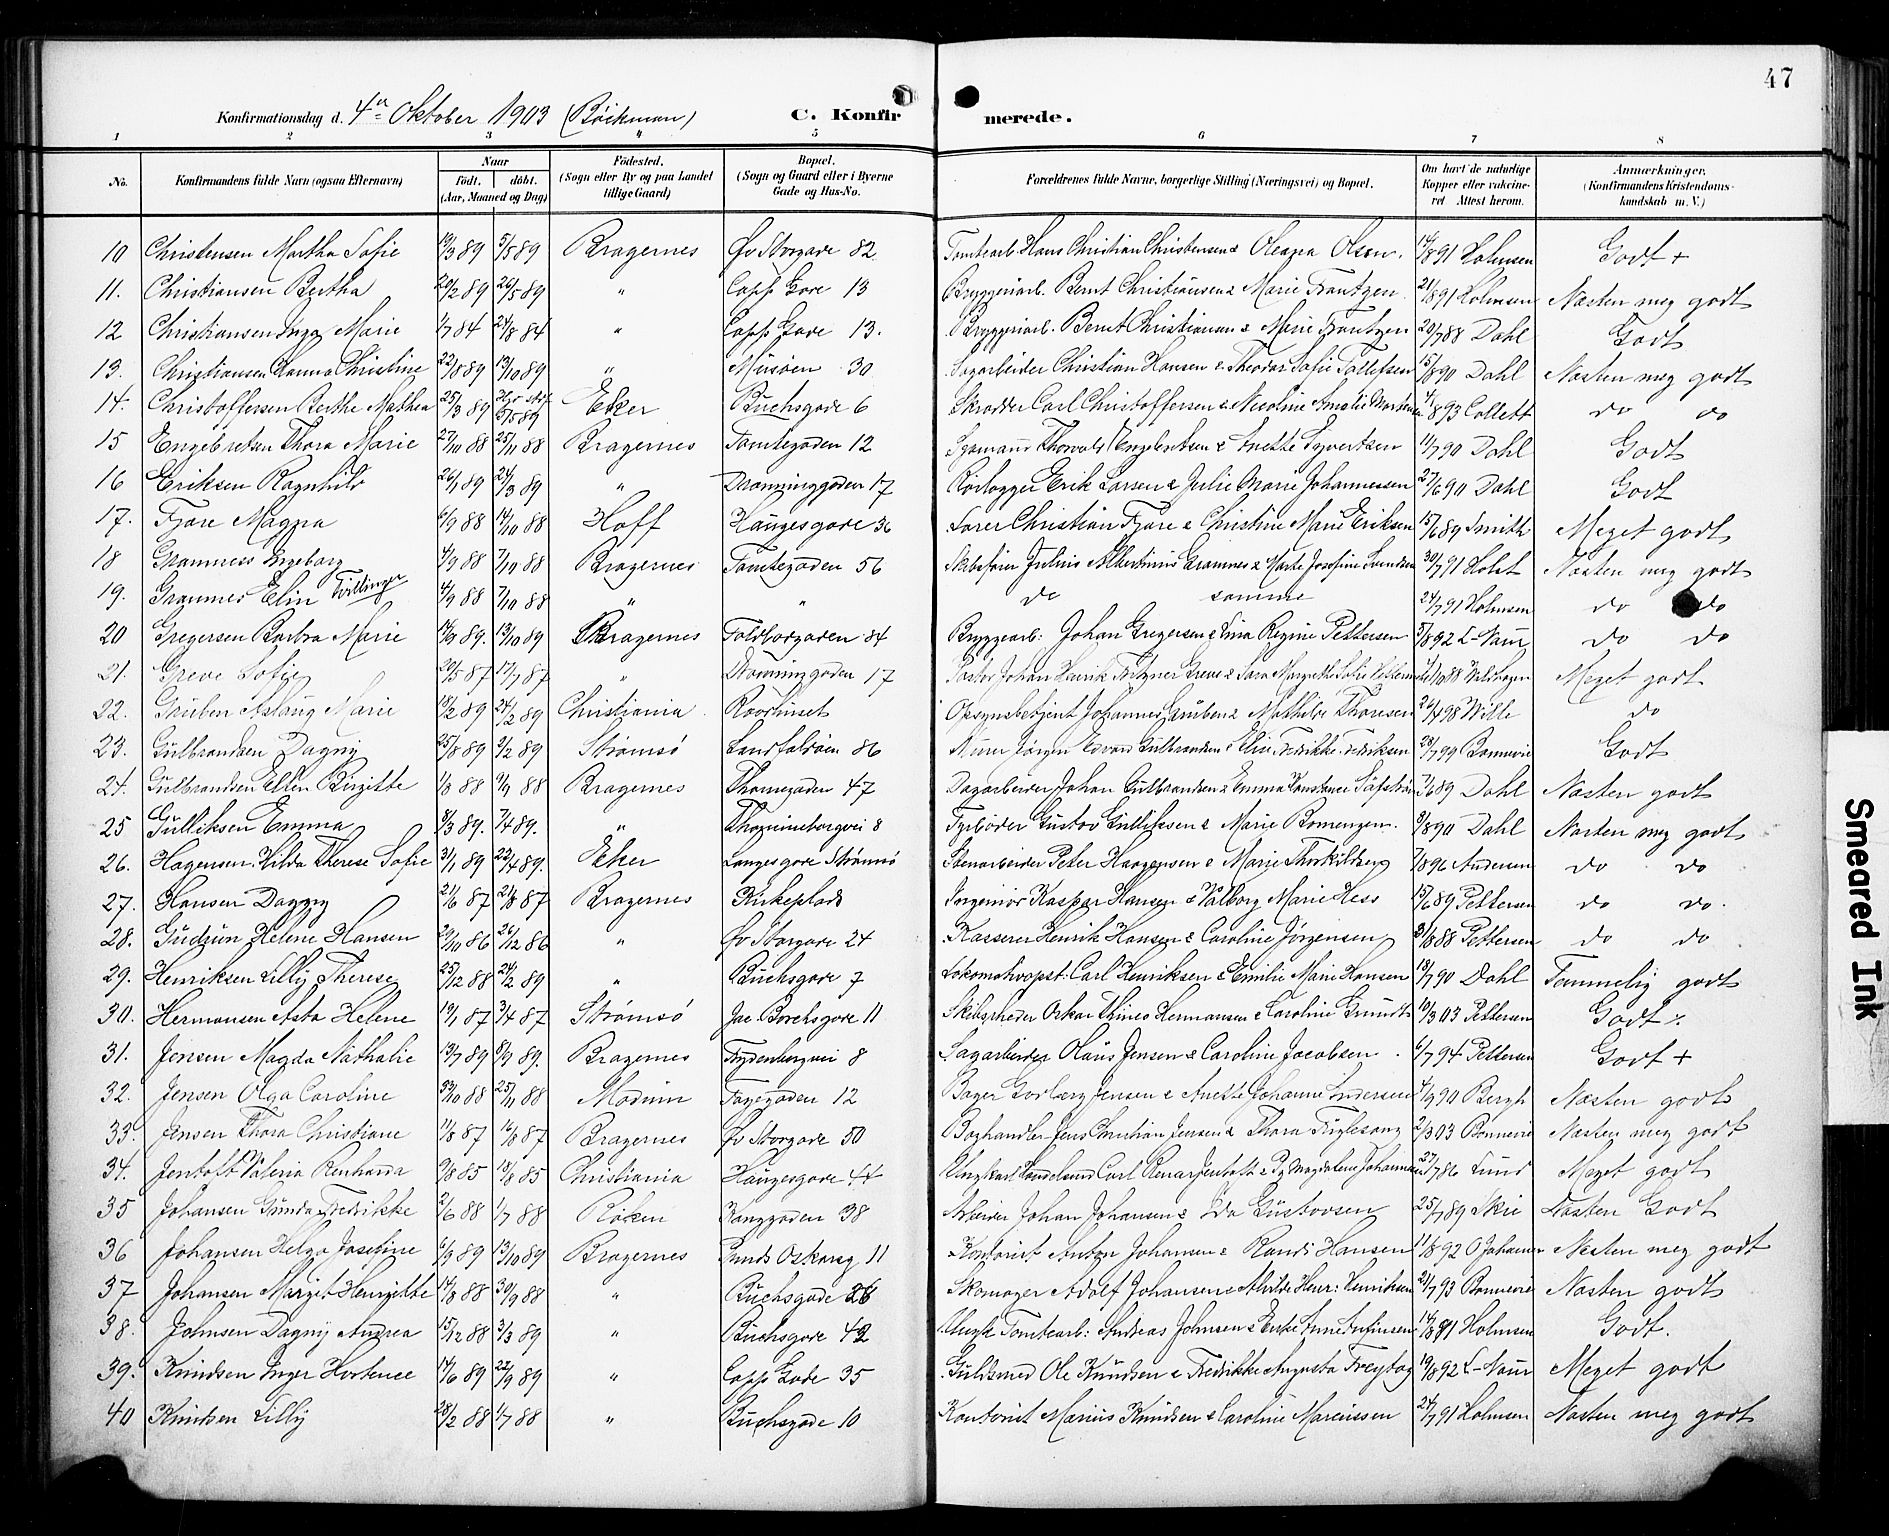 47
Konfirmationsdag d. 4de Oktober 1903 (Böckman) C. Konfirmerede.
1 2 3 4 5 6 7 8
No. Konfirmandens fulde Navn (ogsaa Efternavn) Naar født. døbt. (Aar, Maaned og Dag) Födested. (Sogn eller By og paa Landet tillige Gaard) Bopæl. (Sogn og Gaard eller i Byerne Gade og Hus-No. Forældrenes fulde Navne, borgerlige Stilling (Næringsvei) og Bopæl. Om havt de naturlige Kopper eller vakcineret Attest herom. Anmærkninger. (Konfirmandens Kristendomskundskab m. V.)
10 Christensen Martha Sofie 19/3 89 5/5 89 Bragernes Øv Storgade 82 Tomtearb. Hans Christian Christensen & Olsen. 14/8 91 Holmsen Godt +
11. Christiansen Bertha 20/2 89 26/5 89 " Capp Gade 13 Bryggeriarb. Bernt Christiansen & Marie Frantzen. 21/8 91 Holmsen Næsten meg godt
12 Christiansen Inga Marie 1/7 84 24/8 84 " Capps Gade 13. Bryggeriarb. Bernt Christiansen & Marie Frantzen 20/7 88 Dahl Godt
13. Christiansen Hanna Christine 22/8 89 13/10 89 " Müsøen 30 Sagarbeider Christian Hansen & Theodor Sofie Tollefsen 15/8 90 Dahl Næsten meg godt
14. Christoffersen Berthe Mathea 25/3 89 5/5 89 Eker Buchsgade 6 Skrædder Carl Christoffersen & Nicoline Amalie 4/8 93 Collett do do
15 Engebretsen Thora Marie 27/10 88 25/11 88 Bragernes Tomtegaden 12 Sjømand Thorvald Engebretsen & Anette Syvertsen 11/7 90 Dahl Godt
16 Eriksen Ragnhild 26/1 89 24/3 89 " Dronninggaden 17 Rørlægger Erik Larsen & Julie Marie Johannessen 27/6 90 Dahl Godt
17. Fjære Magna 6/9 88 14/10 88 Hoff Haugesgade 36 Lærer Christian Fjære & Christine Marie Eriksen 15/6 89 Smith Meget godt
18 Gramness Ingeborg 4/9 88 7/10 88 Bragernes Tomtegaden 56 Skibsfører Julius Albertinius Gramnes & Marte Josefine Svendsen 30/7 91 Holst Næsten meg godt
19. Gramnes Elin Tvillinger 4/9 88 7/10 88 " " do samme 24/7 91 Holmsen do do
20 Gregersen Barbra Marie 14/9 89. 13/10 89 Bragernes Toldbodgaden 84 Bryggearb: Johan Gregersen & Lina Regine Pettersen 5/8 92 L-Naur do do
21. Greve Sofie 20/5 87 17/7 87 " Dronninggaden 17 Pastor Johan Henrik Fritzner Greve & Sara Margrethe Sofie Meget godt
22. Gruben Aslaug Marie 18/2 89 24/2 89 Christiania Raadhuset Opsynsbetjent Johannes Gruben & Mathilde Thoresen 26/4 98 Wille do
23. Gulbrandsen Dagny 25/8 89 3/2 89 Strømsø Landfaldøen 86 Murer Jørgen Edvard Gulbrandsen & Elise Fredrikke Fredriksen 28/7 99 Bonnevie Godt
24. Gulbrandsen Ellen Birgitte 1/8 88 9/9 88 Bragernes Thornegaden 47 Dagarbeider Johan Gulbrandsen & Emma Constance 7/6 89 Dahl Næsten godt
25 Gulliksen Emma 8/3 89. 7/4 89. " 8 Fyrbøder Gustav Gulliksen & Marie Bomengen. 9/8 90 Dahl Næsten meg godt
26. Hagensen Hilda Therese Sofie 31/1 89 22/4 89. Eker Langesgade Strømsø Stenarbeider Peter Haagensen & Marie Thorkildsen 7/8 96 Andersen do do
27. Hansen Dagny 21/6 87 21/8 87 Bragernes Kirkeplads Ingeniør Kaspar Hansen & Valborg Marie Hess 15/6 89 Pettersen do do.
28. Gudrun Helene Hansen 29/10 86 26/12 86 " Øv Storgade 24 Kasserer Henrik Hansen & Caroline Jørgensen 31/8 88 Pettersen do do
29. Henriksen Lilly Therese 25/12 88 24/2 89 " Buchsgade 7 Lokomotivopst: Carl Henriksen & Emilie Marie Hansen 18/7 90 Dahl Temmelig godt
30. Hermansen Asta Helene 19/1 87 3/4 87 Strømsø Jac Borchsgade 11 Skibsrheder Oskar Thines Hermansen & Caroline Grundt 10/3 03 Pettersen Godt
31. Jensen Magda Nathalie 13/7 89 8/9 89. Bragernes Frydenbergvei 8 Sagarbeider Olaus Jensen & Caroline Jacobsen. 6/7 94 Pettersen Godt +
32. Jensen Olga Caroline /10 88 25/11 88 Modum Fagegaden 12 Bager Jensen & Anette Johanne Andersen 4/9 90 Bergh Næsten godt
33. Jensen Thora Christiane 11/8 87 16/8 87 Bragernes Øv Storgade 50 Boghandler Jens Christian Jensen & Thora Fuglesang 2/3 03 Bonnevie Næsten meg godt
34. Jentoft Valeria Renharda 9/8 85 18/8 85 Christiania Haugesgade 44 Ungkarl Handelsmd Carl Renard Jentoft & Pg Magdalene Johannesen 27/7 86 Lund Meget godt
35 Johansen Gunda Fredrikke 2/6 88 1/7 88 Røken Konggaden 38 Arbeider Johan Johansen & Ida Gustavsen 25/7 89 Skie Næsten Godt
36 Johansen Helga Josefine 6/9 89 13/10 89 Bragernes Prinds Oskarsg 11 Kontorist Anton Johansen & Randi Hansen 11/8 92 O Johansen Næsten meg godt
37 Johansen Margit Henriette 14/8 88 30/9 88 " Buchsgade 26 Skomager Adolf Johansen & Alvilde Henr: Henriksen 21/7 93 Bonnevie Næsten godt
38. Johnsen Dagny Andrea 15/12 88 3/3 89 " Buchsgade 42 Ungk Tomtearb: Andreas Johnsen & Enke Anne Anfinsen 14/8 91 Holmsen Godt.
39. Knudsen Inger Hortense 14/6 89 22/9 89 " Capp Gade 35 Guldsmed Ole Knudsen & Fredrikke Augusta Freytag 19/8 92 L-Naur Meget godt
40 Knudsen Lilly 28/2 88 1/7 88 " Buchsgade 10 Kontorist Marius Knudsen & Caroline Marcussen 24/7 91 Holmsen Næsten meg godt
Smeared Ink